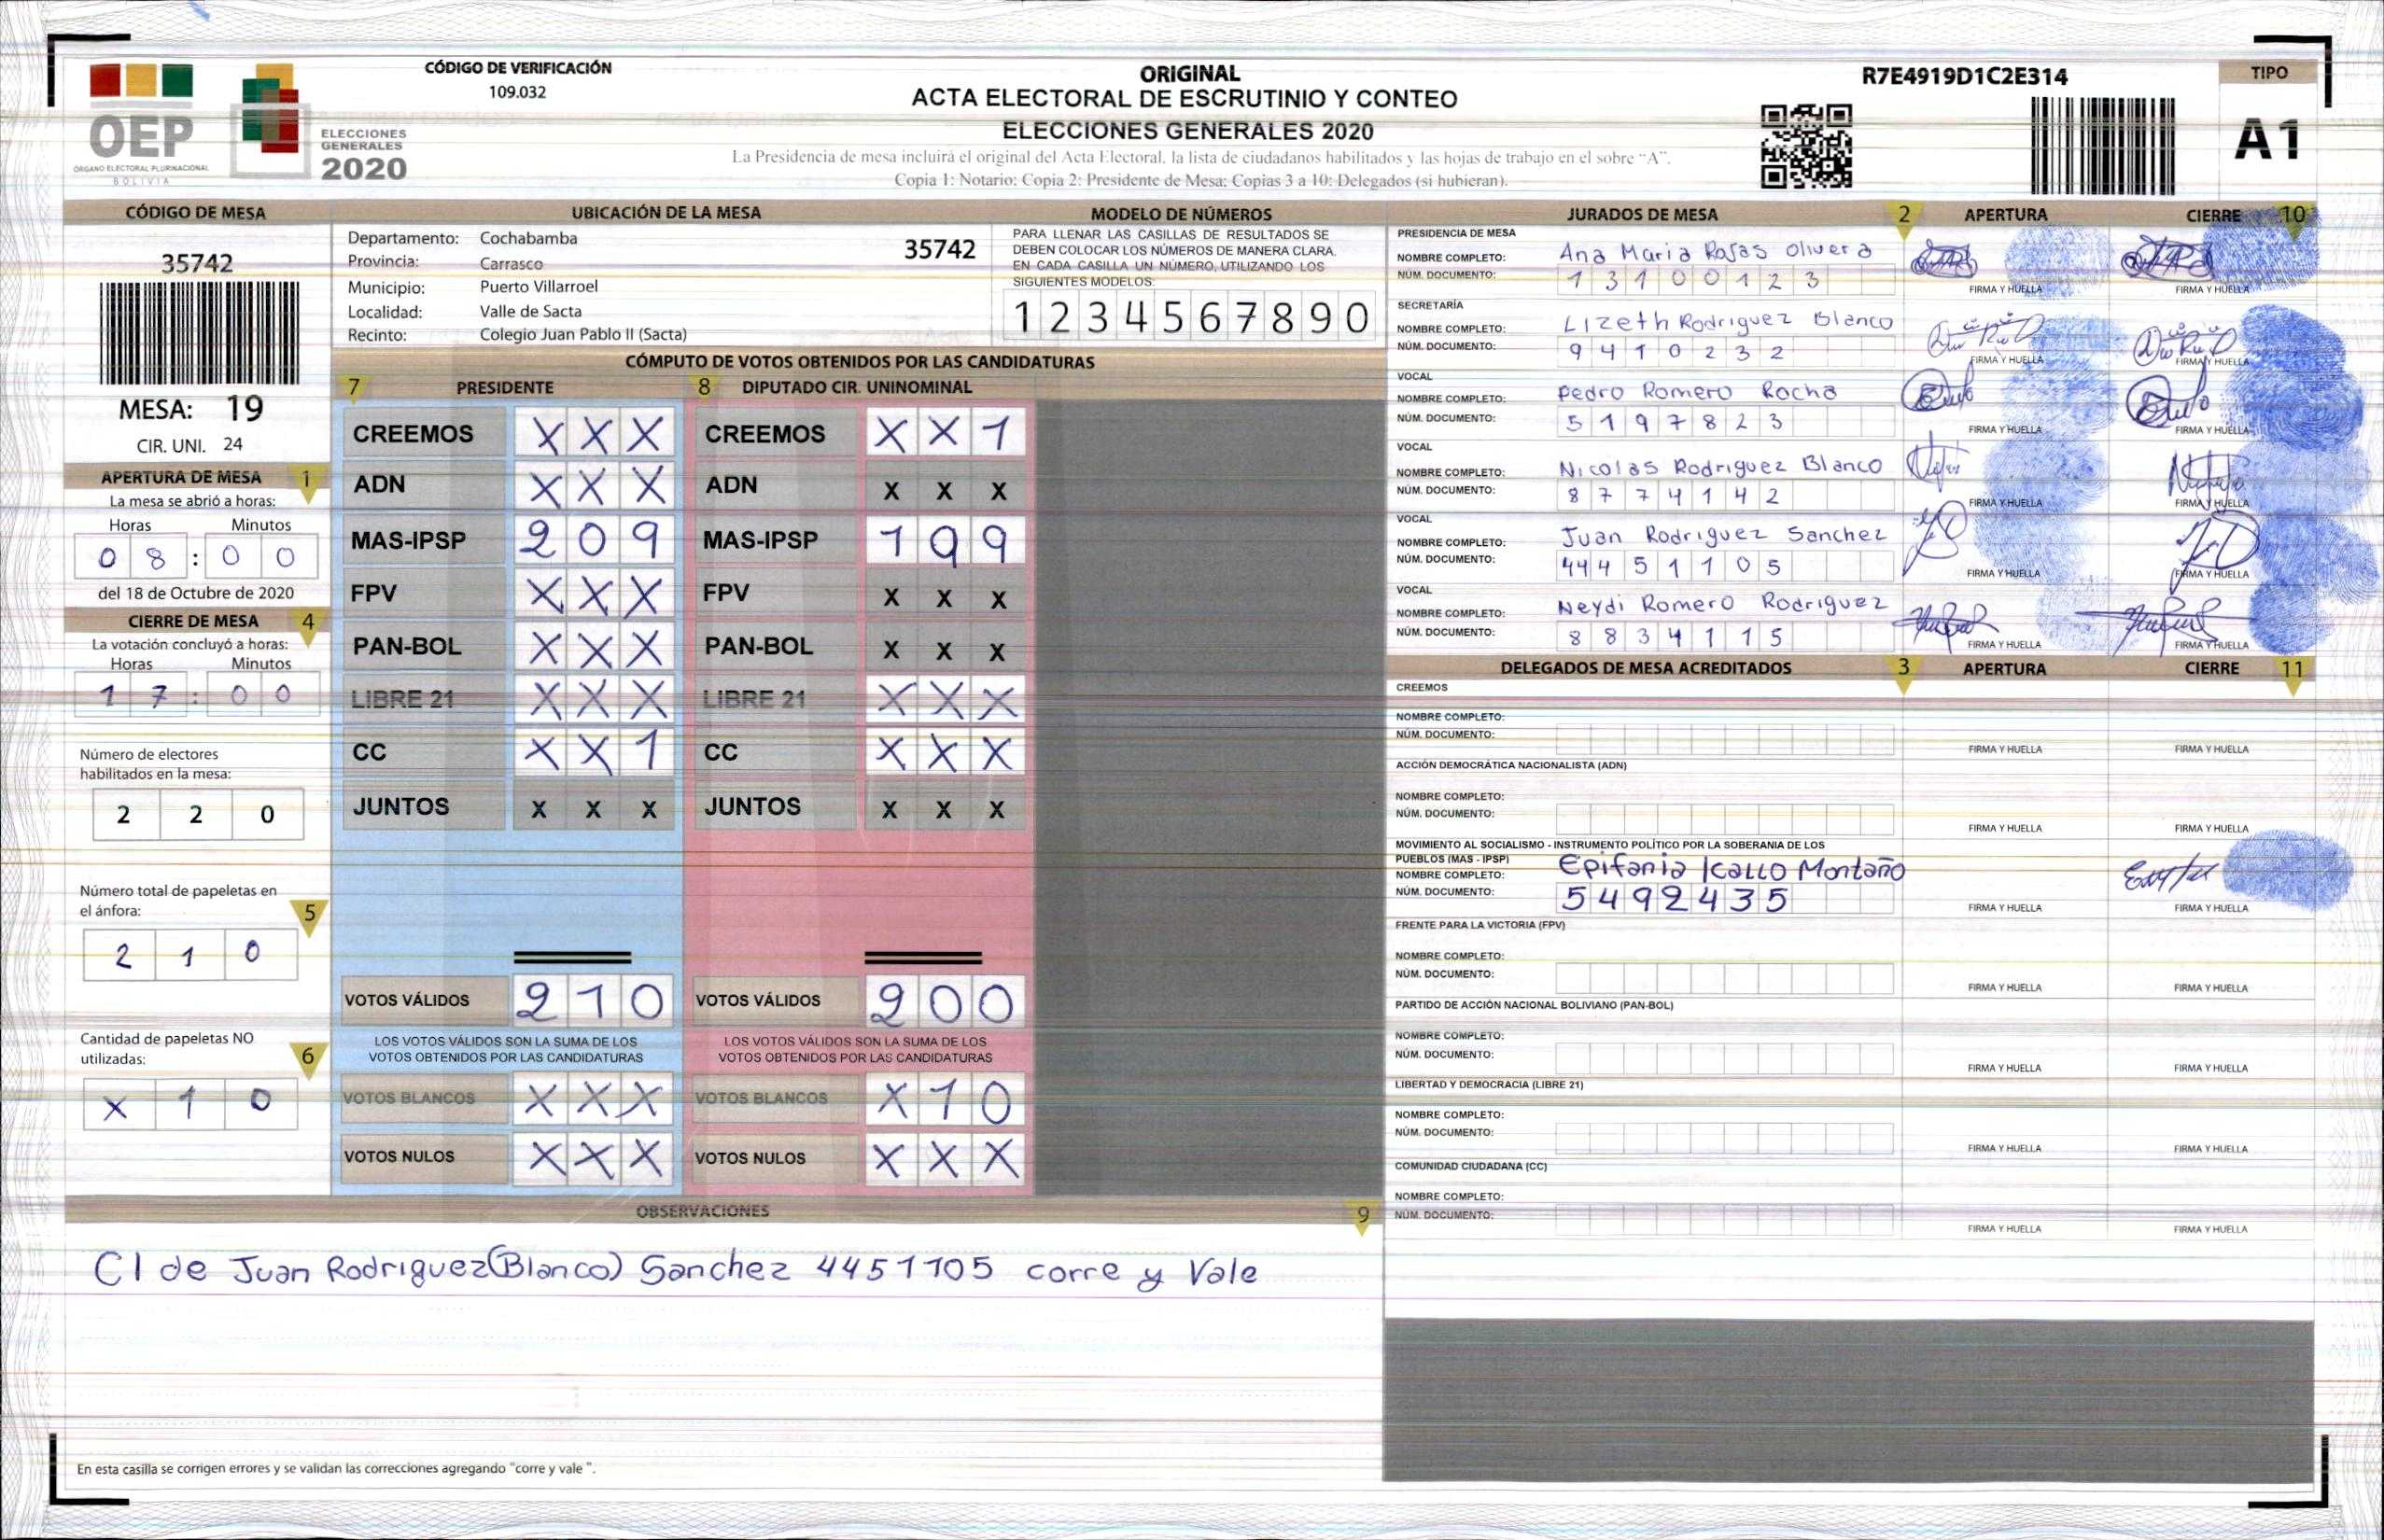 CÓDIGO DE VERIFICACIÓN
109.032
OEP
ÓRGANO ELECTORAL PLURINACIONAL
BOLIVIA
ELECCIONES
GENERALES
2020
ORIGINAL
ACTA ELECTORAL DE ESCRUTINIO Y CONTEO
ELECCIONES GENERALES 2020
La Presidencia de mesa incluirá el original del Acta Electoral, la lista de ciudadanos habilitados y las hojas de trabajo en el sobre "A".
Copia 1: Notario; Copia 2: Presidente de Mesa; Copias 3 a 10: Delegados (si hubieran).
R7E4919D1C2E314
TIPO
A1
CÓDIGO DE MESA
35742
MESA: 19
CIR. UNI. 24
APERTURA DE MESA 1
La mesa se abrió a horas:
Horas Minutos
0 8 : 0 0
del 18 de Octubre de 2020
CIERRE DE MESA 4
La votación concluyó a horas:
Horas Minutos
1 7 : 0 0
Número de electores
habilitados en la mesa:
2 2 0
Número total de papeletas en
el ánfora: 5
2 1 0
Cantidad de papeletas NO
utilizadas: 6
X 1 0
UBICACIÓN DE LA MESA
Departamento: Cochabamba 35742
Provincia: Carrasco
Municipio: Puerto Villarroel
Localidad: Valle de Sacta
Recinto: Colegio Juan Pablo II (Sacta)
MODELO DE NÚMEROS
PARA LLENAR LAS CASILLAS DE RESULTADOS SE
DEBEN COLOCAR LOS NÚMEROS DE MANERA CLARA.
EN CADA CASILLA UN NÚMERO, UTILIZANDO LOS
SIGUIENTES MODELOS:
1 2 3 4 5 6 7 8 9 0
CÓMPUTO DE VOTOS OBTENIDOS POR LAS CANDIDATURAS
7 PRESIDENTE 8 DIPUTADO CIR. UNINOMINAL
CREEMOS X X X CREEMOS X X 1
ADN X X X ADN X X X
MAS-IPSP 2 0 9 MAS-IPSP 1 9 9
FPV X X X FPV X X X
PAN-BOL X X X PAN-BOL X X X
LIBRE 21 X X X LIBRE 21 X X X
CC X X 1 CC X X X
JUNTOS X X X JUNTOS X X X
VOTOS VÁLIDOS 2 1 0 VOTOS VÁLIDOS 2 0 0
LOS VOTOS VÁLIDOS SON LA SUMA DE LOS LOS VOTOS VÁLIDOS SON LA SUMA DE LOS
VOTOS OBTENIDOS POR LAS CANDIDATURAS VOTOS OBTENIDOS POR LAS CANDIDATURAS
VOTOS BLANCOS X X X VOTOS BLANCOS X 1 0
VOTOS NULOS X X X VOTOS NULOS X X X
JURADOS DE MESA 2 APERTURA CIERRE 10
PRESIDENCIA DE MESA
NOMBRE COMPLETO: Ana Maria Rojas Olivera
NÚM. DOCUMENTO: 1 3 1 0 0 1 2 3
FIRMA Y HUELLA FIRMA Y HUELLA
SECRETARÍA
NOMBRE COMPLETO: Lizeth Rodriguez Blanco
NÚM. DOCUMENTO: 9 4 1 0 2 3 2
FIRMA Y HUELLA FIRMA Y HUELLA
VOCAL
NOMBRE COMPLETO: Pedro Romero Rocha
NÚM. DOCUMENTO: 5 1 9 7 8 2 3
FIRMA Y HUELLA FIRMA Y HUELLA
VOCAL
NOMBRE COMPLETO: Nicolas Rodriguez Blanco
NÚM. DOCUMENTO: 8 7 7 4 1 4 2
FIRMA Y HUELLA FIRMA Y HUELLA
VOCAL
NOMBRE COMPLETO: Juan Rodriguez Sanchez
NÚM. DOCUMENTO: 44 4 5 1 1 0 5
FIRMA Y HUELLA FIRMA Y HUELLA
VOCAL
NOMBRE COMPLETO: Neydi Romero Rodriguez
NÚM. DOCUMENTO: 8 8 3 4 1 1 5
FIRMA Y HUELLA FIRMA Y HUELLA
DELEGADOS DE MESA ACREDITADOS 3 APERTURA CIERRE 11
CREEMOS
NOMBRE COMPLETO:
NÚM. DOCUMENTO:
FIRMA Y HUELLA FIRMA Y HUELLA
ACCIÓN DEMOCRÁTICA NACIONALISTA (ADN)
NOMBRE COMPLETO:
NÚM. DOCUMENTO:
FIRMA Y HUELLA FIRMA Y HUELLA
MOVIMIENTO AL SOCIALISMO - INSTRUMENTO POLÍTICO POR LA SOBERANIA DE LOS
PUEBLOS (MAS - IPSP)
NOMBRE COMPLETO: Epifania Montaño
NÚM. DOCUMENTO: 5 4 9 2 4 3 5
FIRMA Y HUELLA FIRMA Y HUELLA
FRENTE PARA LA VICTORIA (FPV)
NOMBRE COMPLETO:
NÚM. DOCUMENTO:
FIRMA Y HUELLA FIRMA Y HUELLA
PARTIDO DE ACCIÓN NACIONAL BOLIVIANO (PAN-BOL)
NOMBRE COMPLETO:
NÚM. DOCUMENTO:
FIRMA Y HUELLA FIRMA Y HUELLA
LIBERTAD Y DEMOCRACIA (LIBRE 21)
NOMBRE COMPLETO:
NÚM. DOCUMENTO:
FIRMA Y HUELLA FIRMA Y HUELLA
COMUNIDAD CIUDADANA (CC)
NOMBRE COMPLETO:
NÚM. DOCUMENTO:
FIRMA Y HUELLA FIRMA Y HUELLA
OBSERVACIONES 9
CI de Juan Rodriguez(Blanco) Sanchez 4451105 corre y Vale
En esta casilla se corrigen errores y se validan las correcciones agregando "corre y vale ".